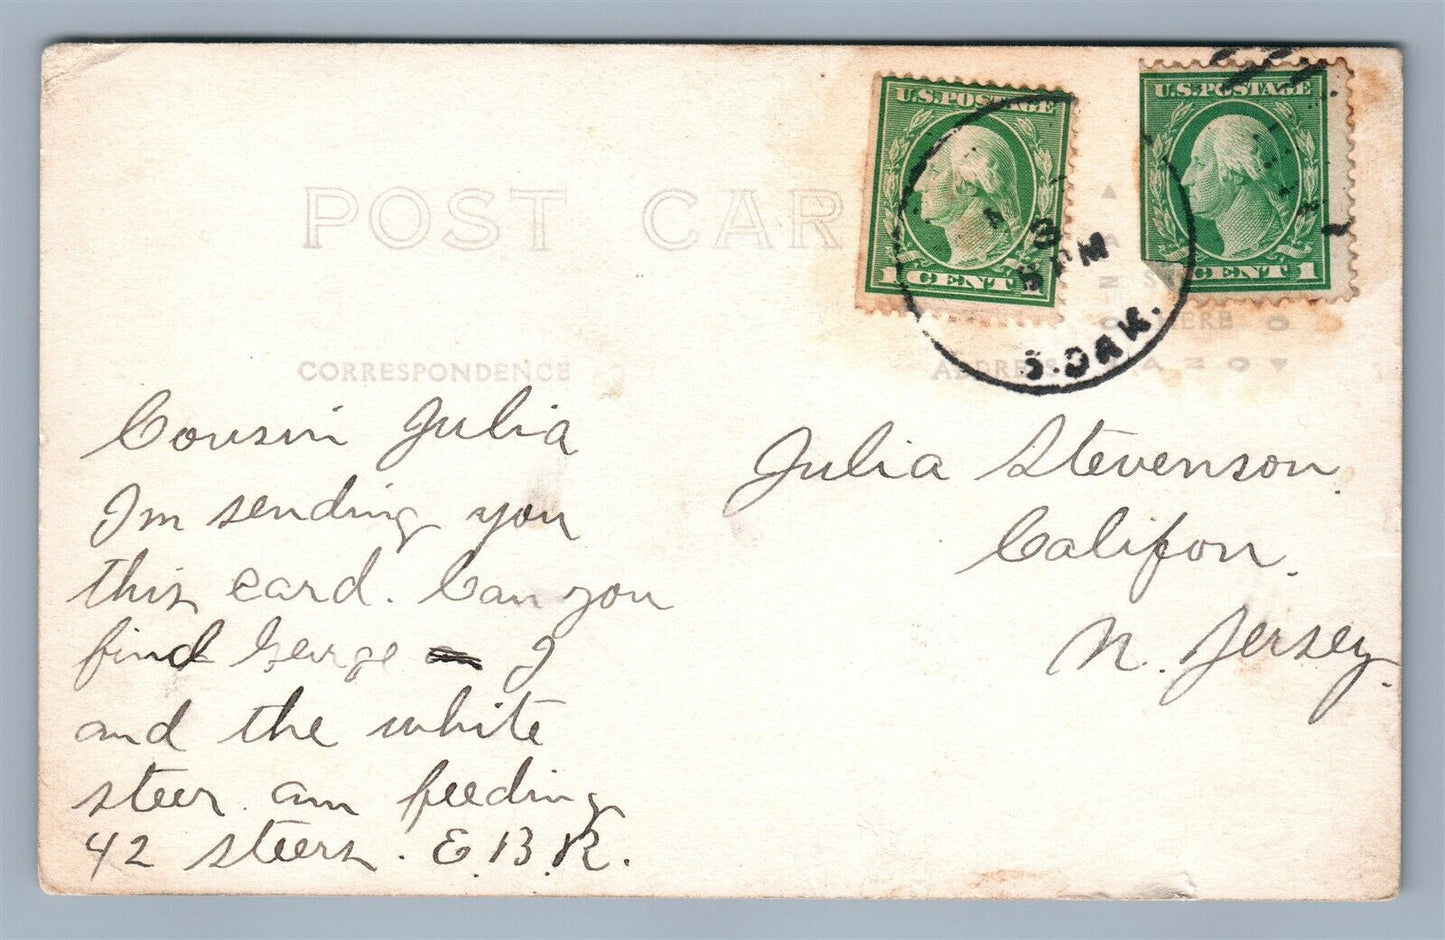 U.S.POSTAGE
1 CENT 1
U.S.POSTAGE
CENT 1
3
PM
S.DAK.
POST CAR
CORRESPONDENCE
ADDRESS
HERE
Cousin Julia
Im sending you
this card. Can you
find George I
and the white
steer. am feeding
42 steers. E.B.R.
Julia Stevenson.
Califon.
N. Jersey.